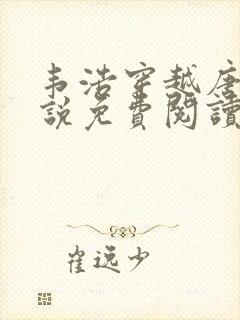 韦浩穿越唐
說免費閱讀
崔远少